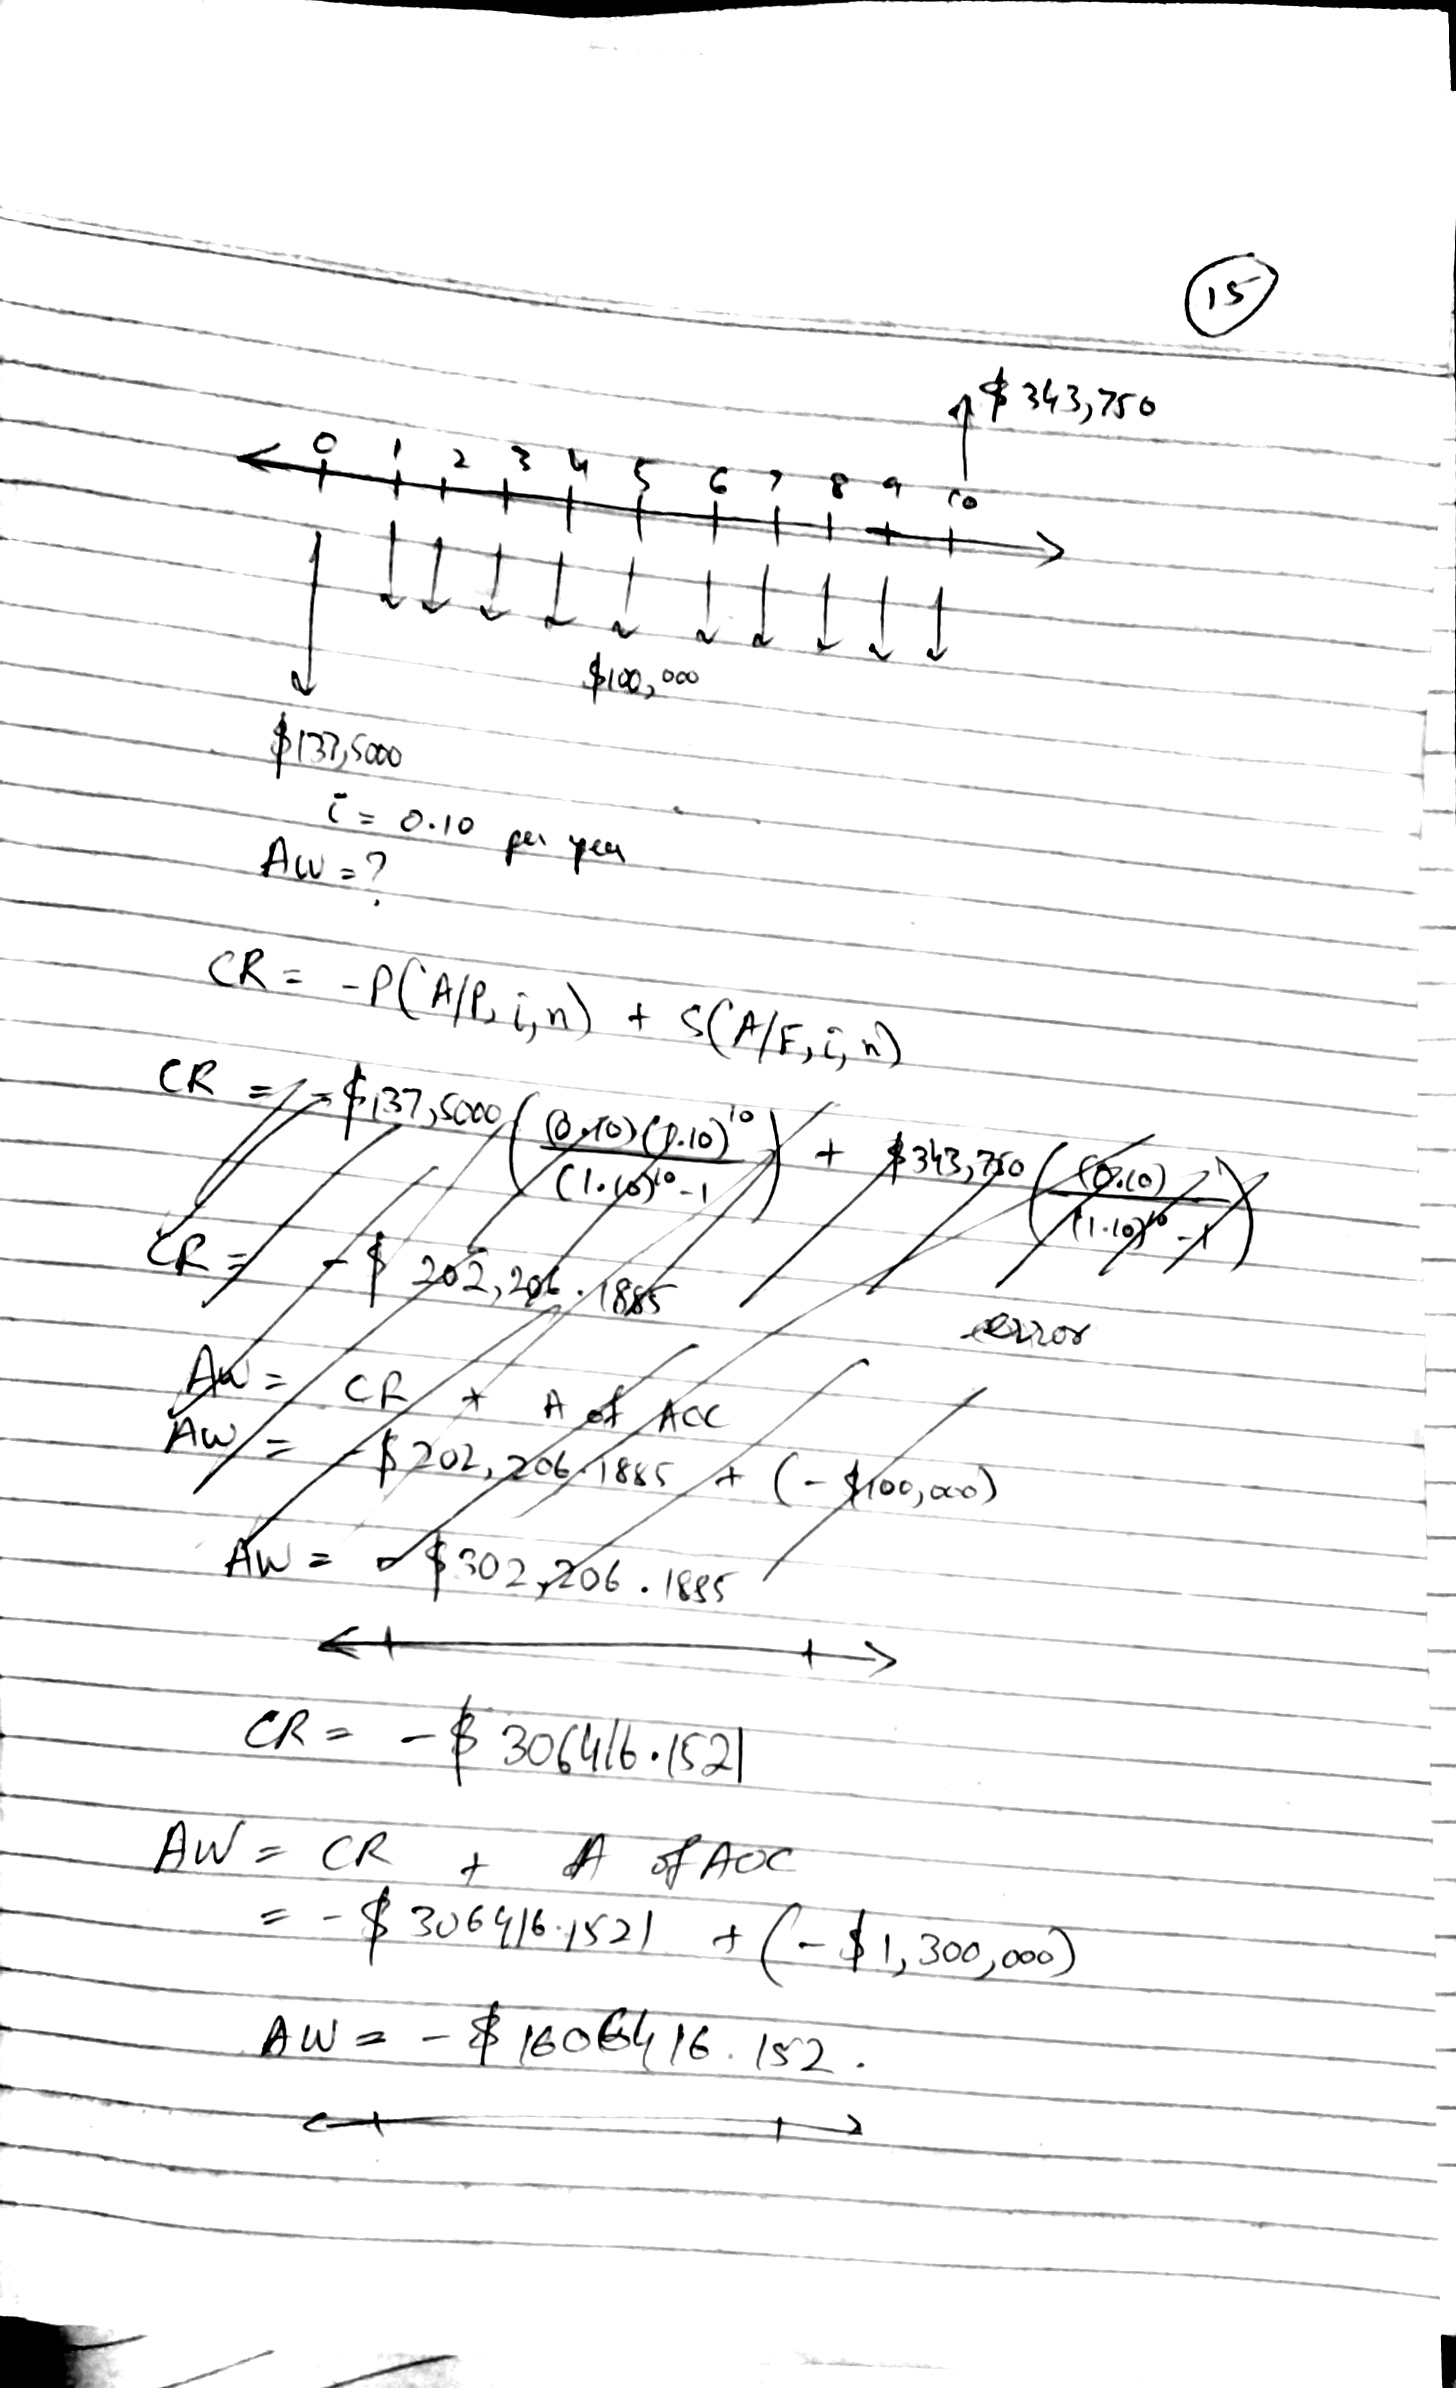 15
$343,750
0 1 2 3 4 5 6 7 8 9 10
$100,000
$137,5000
i = 0.10 per year
AW = ?
CR = -P(A/P, i, n) + S(A/F, i, n)
CR = -$137,5000 ( (0.10)(1.10)^10 / (1.10)^10 - 1 ) + $343,750 ( (0.10) / (1.10)^10 - 1 )
CR = -$ 202,206.1885
error
AW = CR + A of AOC
AW = -$202,206.1885 + (-$100,000)
AW = -$302,206.1885
CR = -$306416.1521
AW = CR + A of AOC
= -$306416.1521 + (-$1,300,000)
AW = -$1606416.152.